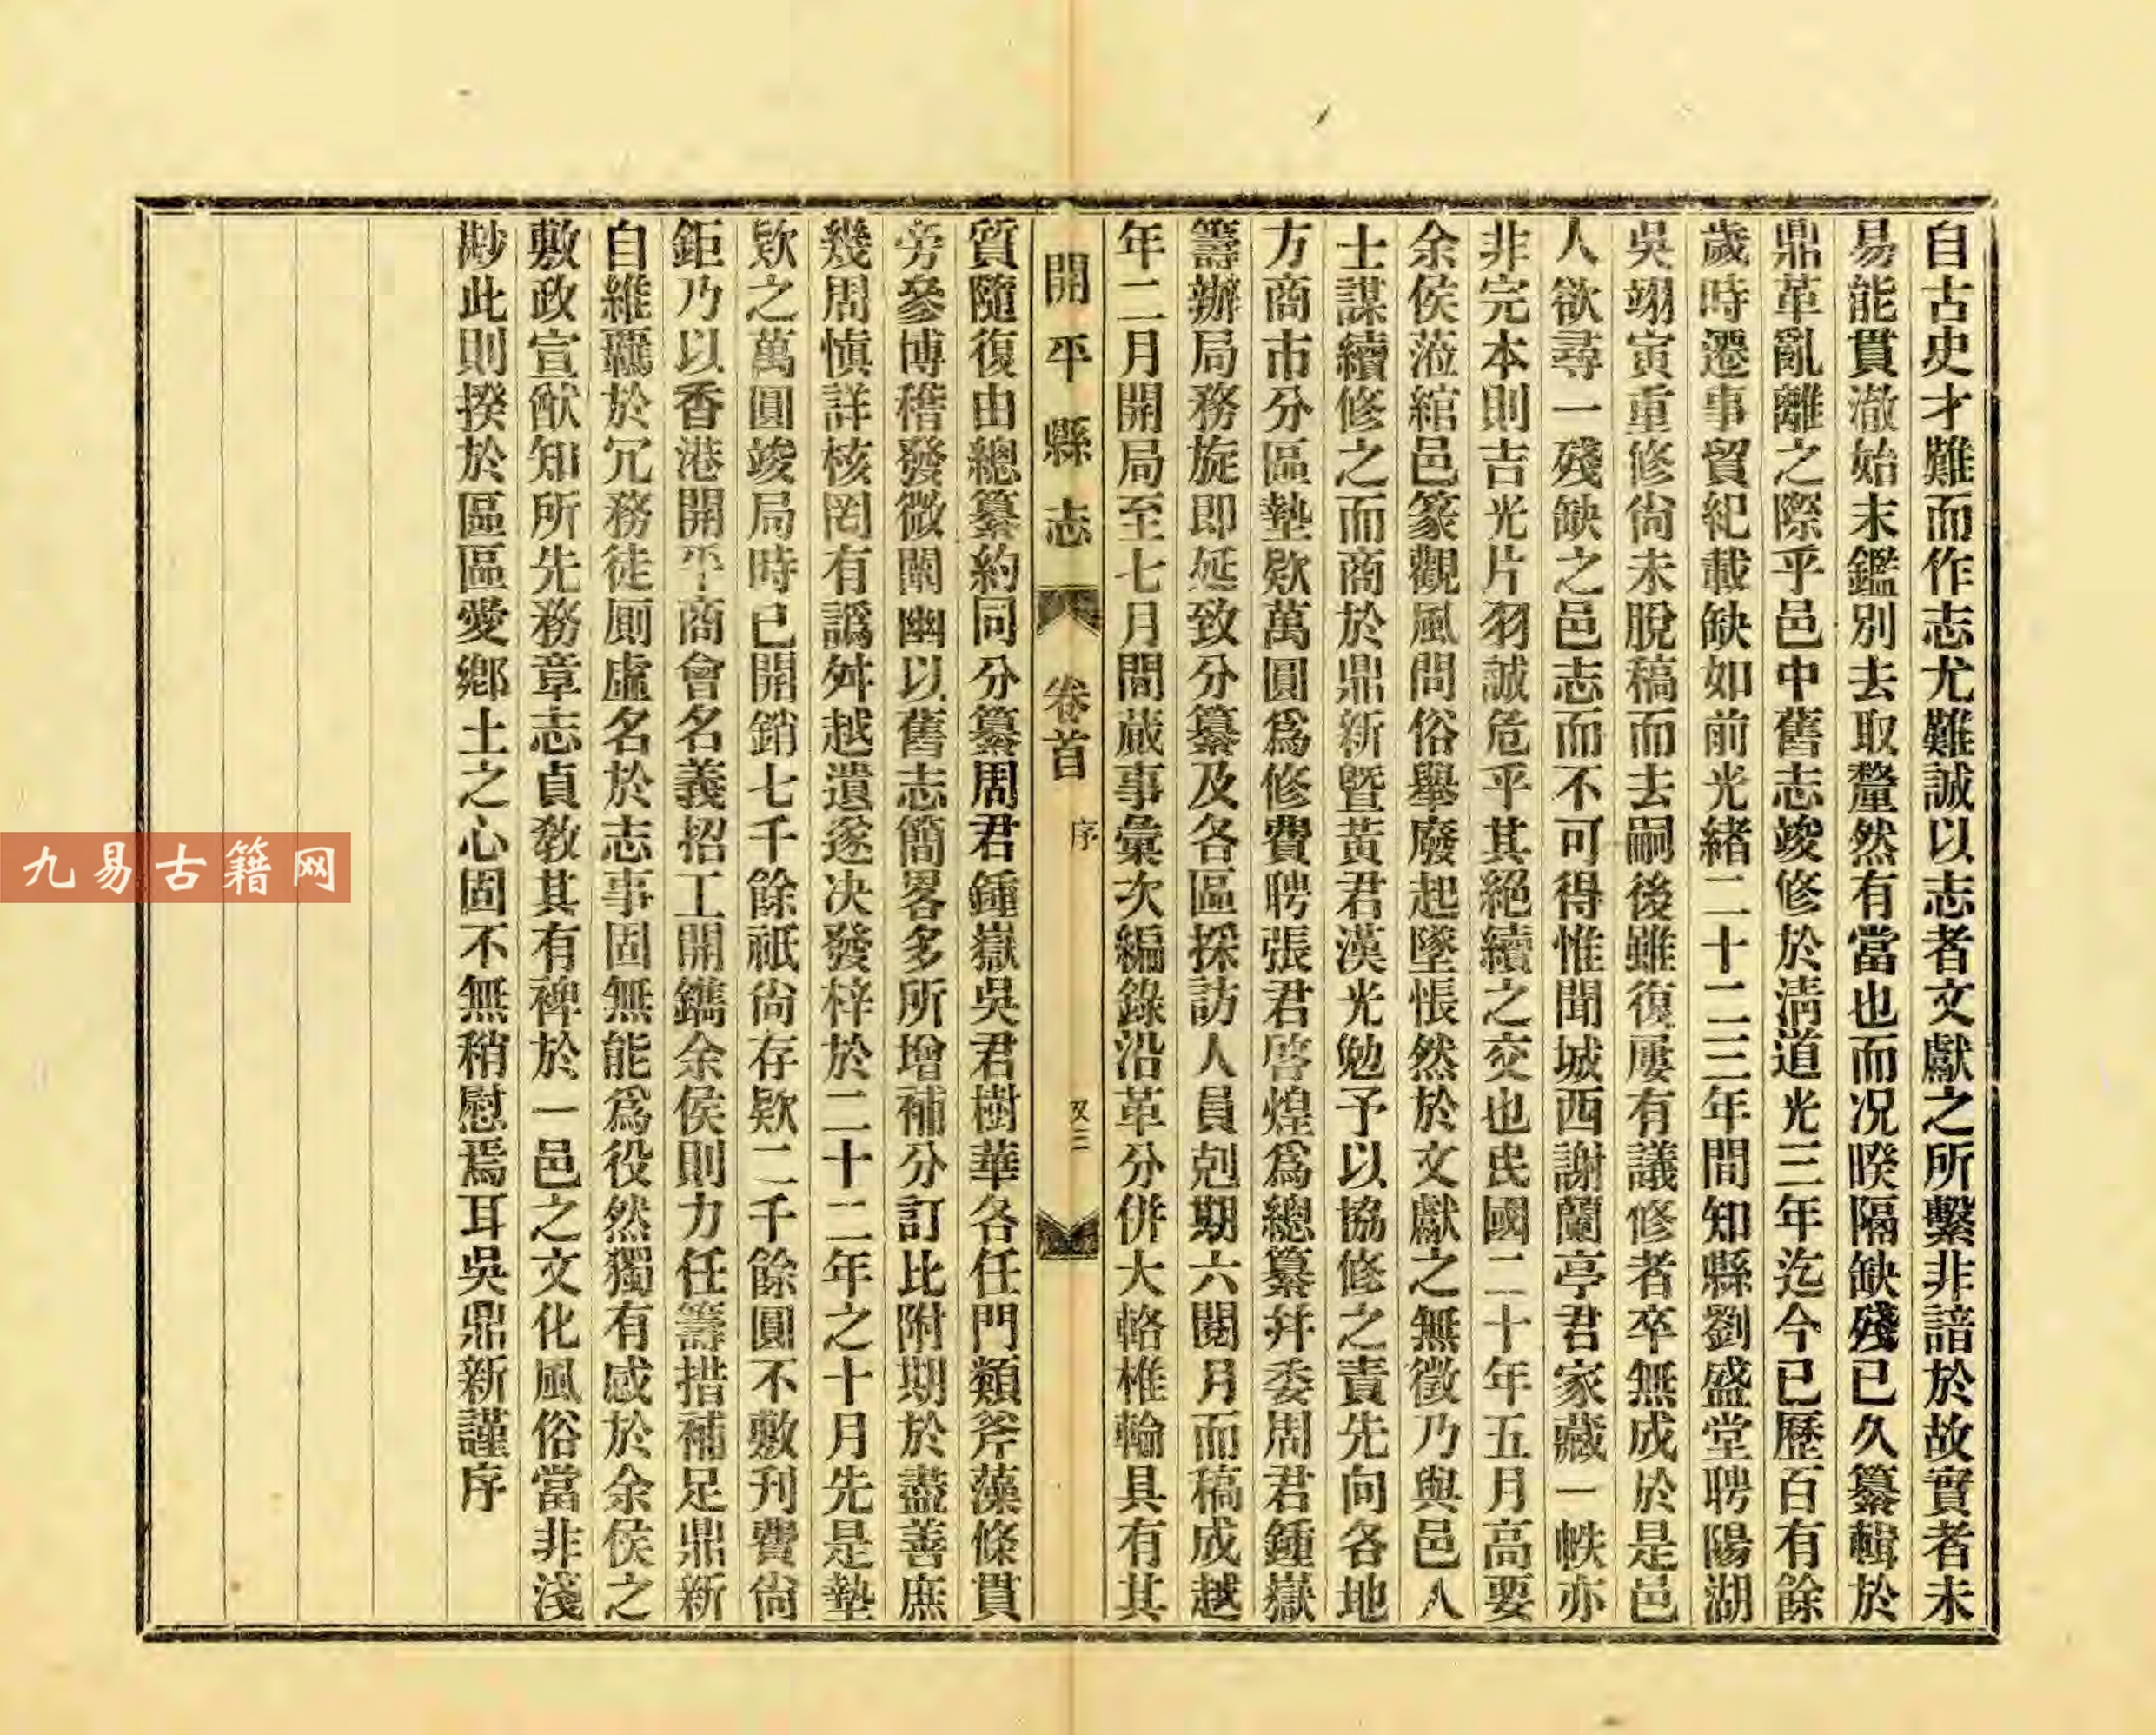 自古史才難而作志尤難誠以志者文獻之所繫非諳於故實者未
易能貫澈始末鑑別去取釐然有當也而況暌隔缺殘已久纂輯於
鼎革亂離之際乎邑中舊志竣修於淸道光三年迄今已歷百有餘
歲時遷事貿紀載缺如前光緒二十二三年間知縣劉盛堂聘陽湖
吳翊寅重修尙未脫稿而去嗣後雖復屢有議修者卒無成於是邑
人欲尋一殘缺之邑志而不可得惟聞城西謝蘭亭君家藏一帙亦
非完本則吉光片羽誠危乎其絕續之交也民國二十年五月高要
余侯蒞綰邑篆觀風問俗舉廢起墜悵然於文獻之無徵乃與邑人
士謀續修之而商於鼎新曁黃君漢光勉予以協修之責先向各地
方商市分區墊欵萬圓爲修費聘張君啓煌爲總纂并委周君鍾嶽
籌辦局務旋即延致分纂及各區採訪人員剋期六閱月而稿成越
年二月開局至七月間蕆事彙次編錄沿革分併大輅椎輪具有其
開平縣志
卷首
序
又三
質隨復由總纂約同分纂周君鍾嶽吳君樹華各任門類斧藻條貫
旁參博稽發微闡幽以舊志簡畧多所增補分訂比附期於盡善庶
幾周愼詳核罔有譌舛越遺遂决發梓於二十二年之十月先是墊
欵之萬圓竣局時已開銷七千餘祇尙存欵二千餘圓不敷刋費尙
鉅乃以香港開平商會名義招工開鐫余侯則力任籌措補足鼎新
自維羈於冗務徒厠虛名於志事固無能爲役然獨有感於余侯之
敷政宣猷知所先務章志貞敎其有裨於一邑之文化風俗當非淺
尠此則揆於區區愛鄕土之心固不無稍慰焉耳吳鼎新謹序
九易古籍网